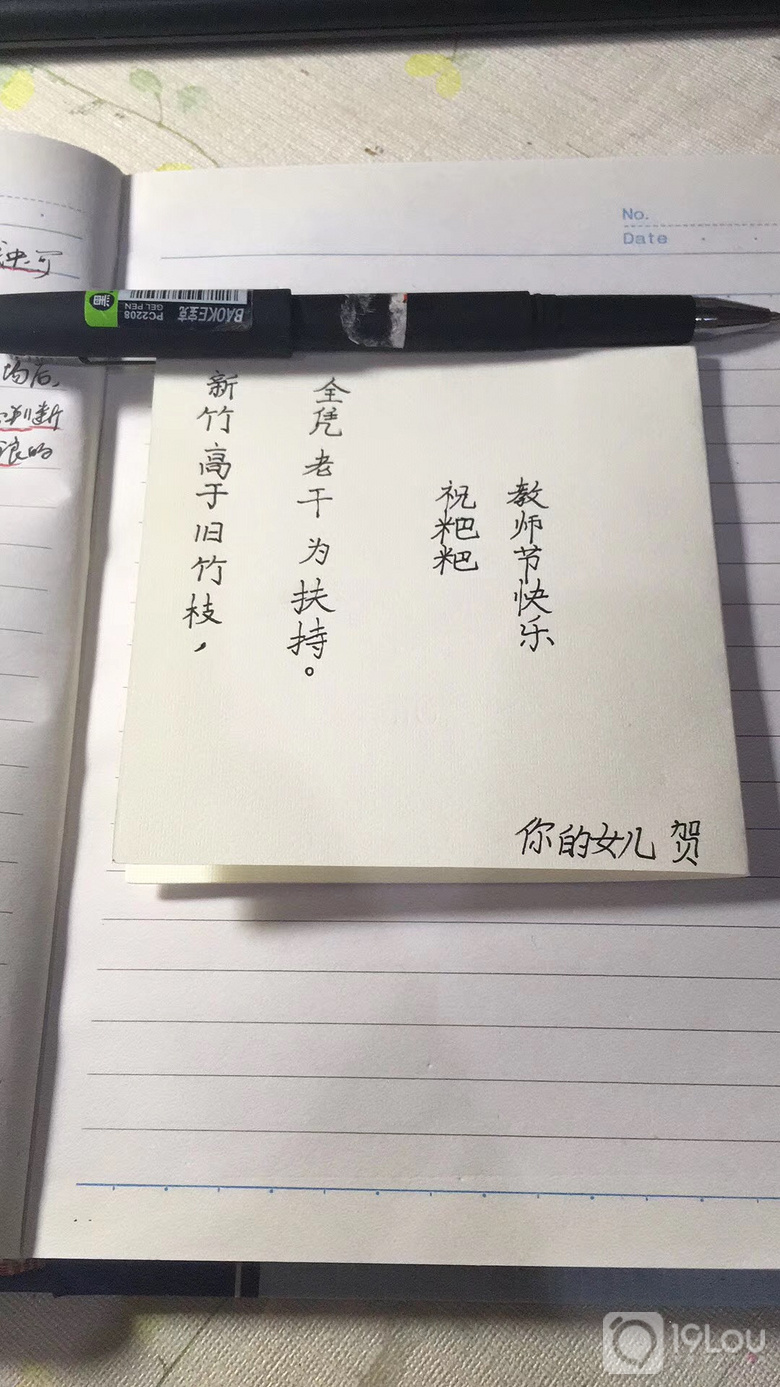 No.
Date
BAOKE宝克
PC2208
GEL PEN
场后,
判断
新竹高于旧竹枝，
全凭老干为扶持。
祝粑粑
教师节快乐
你的女儿 贺
19Lou